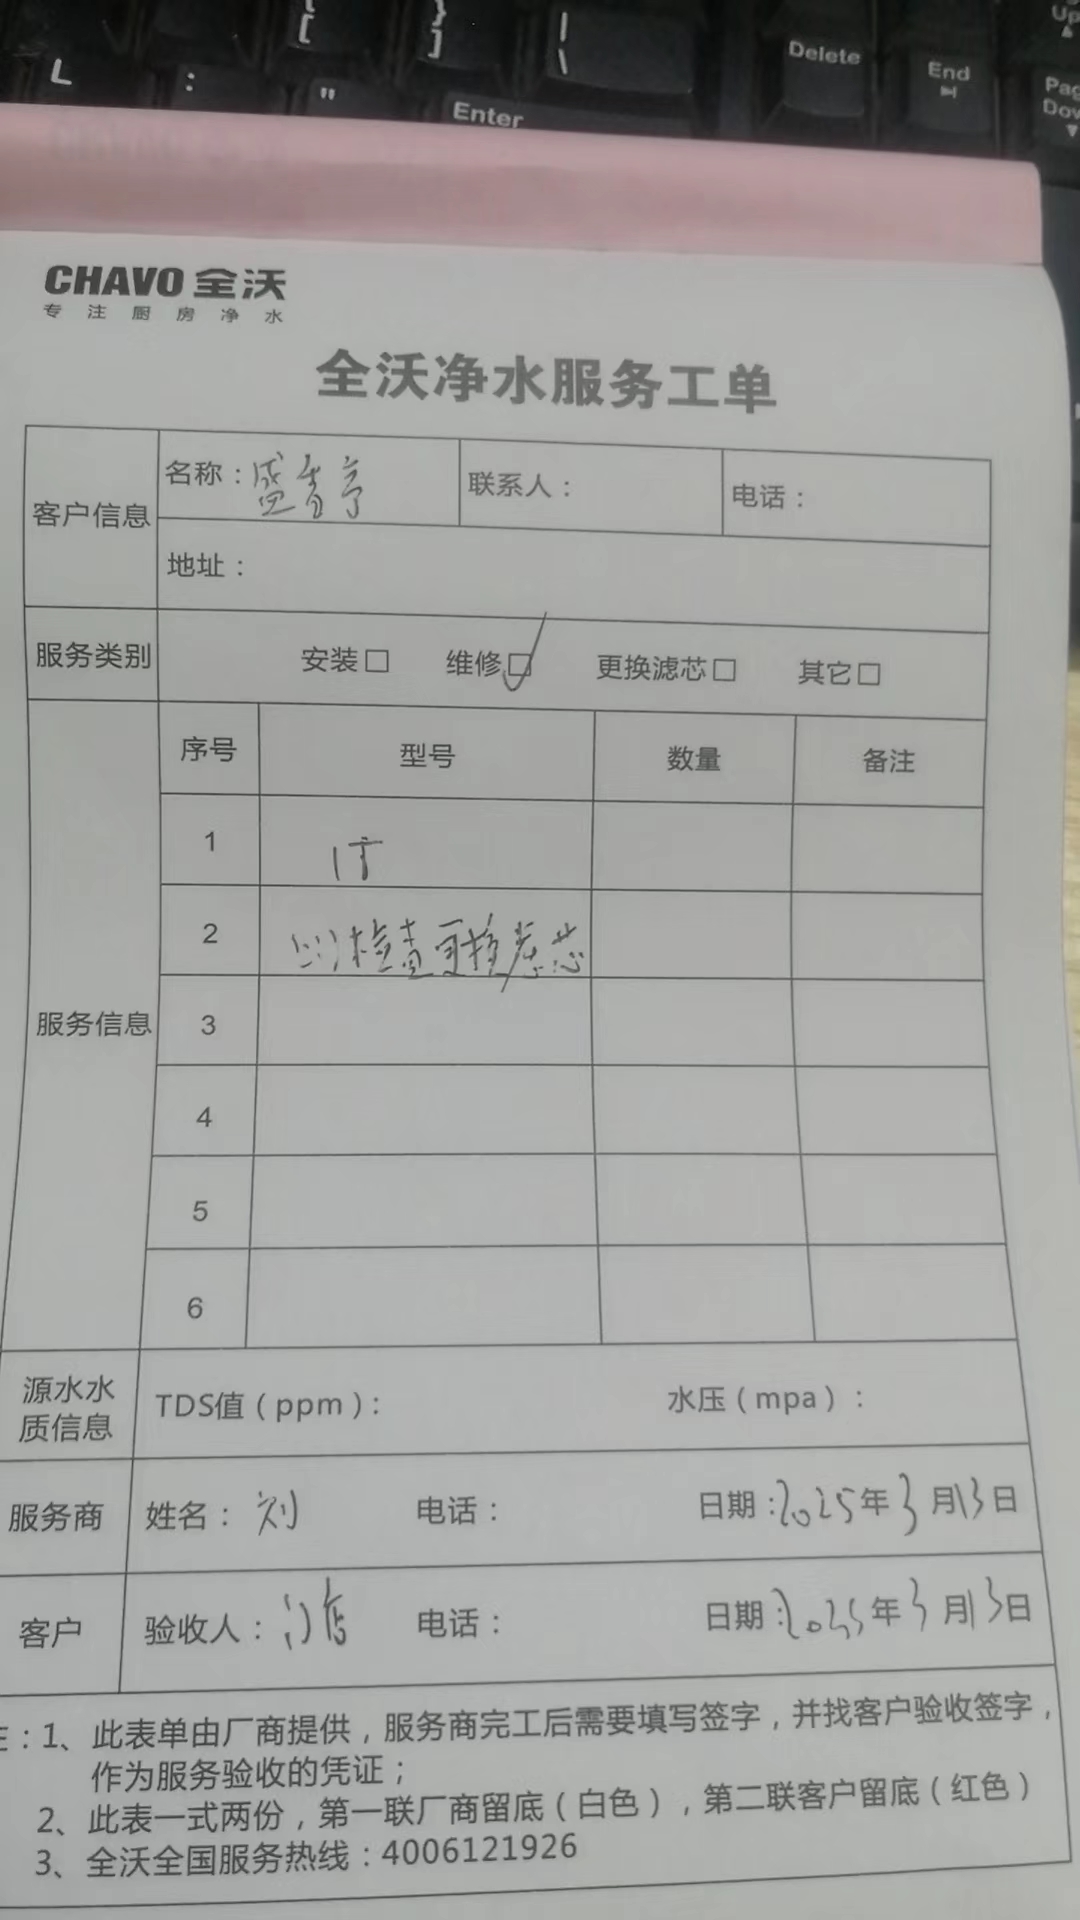 { [
} ]
| \
Delete
End
Up
Page Down
L
: 
"
Enter
CHAVO 全沃
专注厨房净水
全沃净水服务工单
客户信息 名称：盛香亭 联系人： 电话：
地址：
服务类别 安装□ 维修☑ 更换滤芯□ 其它□
服务信息 序号 型号 数量 备注
1
2 检查更换滤芯
3
4
5
6
源水水质信息 TDS值（ppm）： 水压（mpa）：
服务商 姓名：刘 电话： 日期：2025年3月13日
客户 验收人：门店 电话： 日期：2025年3月13日
注：1、此表单由厂商提供，服务商完工后需要填写签字，并找客户验收签字，
作为服务验收的凭证；
2、此表一式两份，第一联厂商留底（白色），第二联客户留底（红色）
3、全沃全国服务热线：4006121926